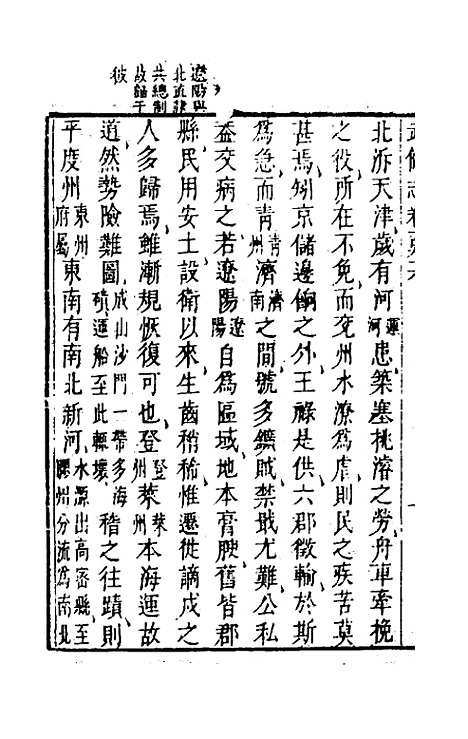 遼陽與
北直隸
共總制
故歸于
彼
武備志卷
北泝天津歲有河運河患築塞挑濬之勞舟車牽挽
之役所在不免而兗州水潦為虐則民之疾苦莫
甚焉矧京儲邊餉之外王祿是供六郡徵輸於斯
為急而青青州濟濟南之間號多鑛賊禁戢尤難公私
益交病之若遼陽遼陽自為區域地本膏腴舊皆郡
縣民用安土設衛以來生齒稍稀惟遷徙謫戍之
人多歸焉雖漸規恢復可也登登州萊萊州本海運故
道然勢險難圖成山沙門一帶多海磧運船至此輒壞稽之往蹟則
平度州東州府屬東南有南北新河水源出高密縣至膠州分流為南北